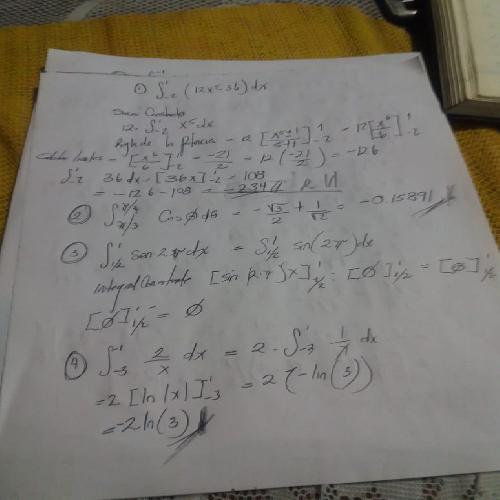 ① ∫₋₂¹ (12x⁵-36) dx
Sacar Constante
12 · ∫₋₂¹ x⁵ dx
Regla de la Potencia = 12 [x⁵⁺¹/5+1]₋₂¹ = 12 [x⁶/6]₋₂¹
[x⁶/6]₋₂¹ = -21/2 = 12 (-21/2) = -126
∫₋₂¹ 36 dx = [36x]₋₂¹ = 108
= -126 - 108 = -234 // R
② ∫π/3 π/4 Cos Ø dØ = -√3/2 + 1/√2 = -0.15891
③ ∫₁/₂¹ sen 2π dx = ∫₁/₂¹ sin(2π) dx
Integral Constante [sin(2·π)x]₁/₂¹ = [Ø]₁/₂¹ = [Ø]₁/₂¹
[Ø]₁/₂¹ = Ø
④ ∫₋₃¹ 2/x dx = 2 · ∫₋₃¹ 1/x dx
= 2 [ln |x|]₋₃¹ = 2 (-ln(3))
= -2 ln(3)